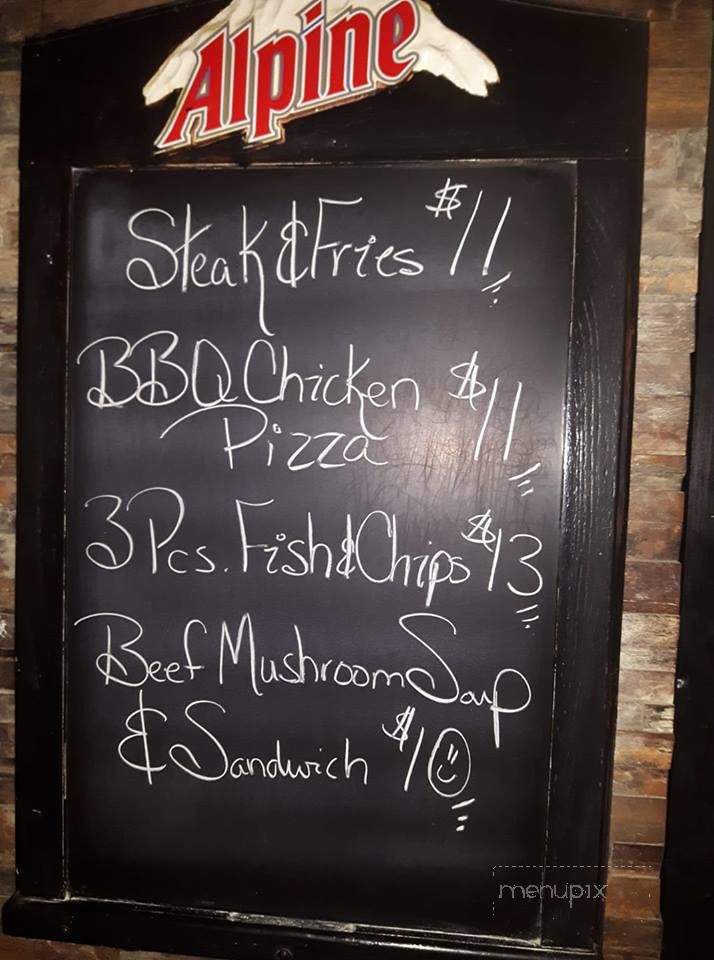 Alpine
Steak & Fries $11
BBQ Chicken $11
Pizza
3 Pcs. Fish & Chips $13
Beef Mushroom Soup
& Sandwich $10
menupix